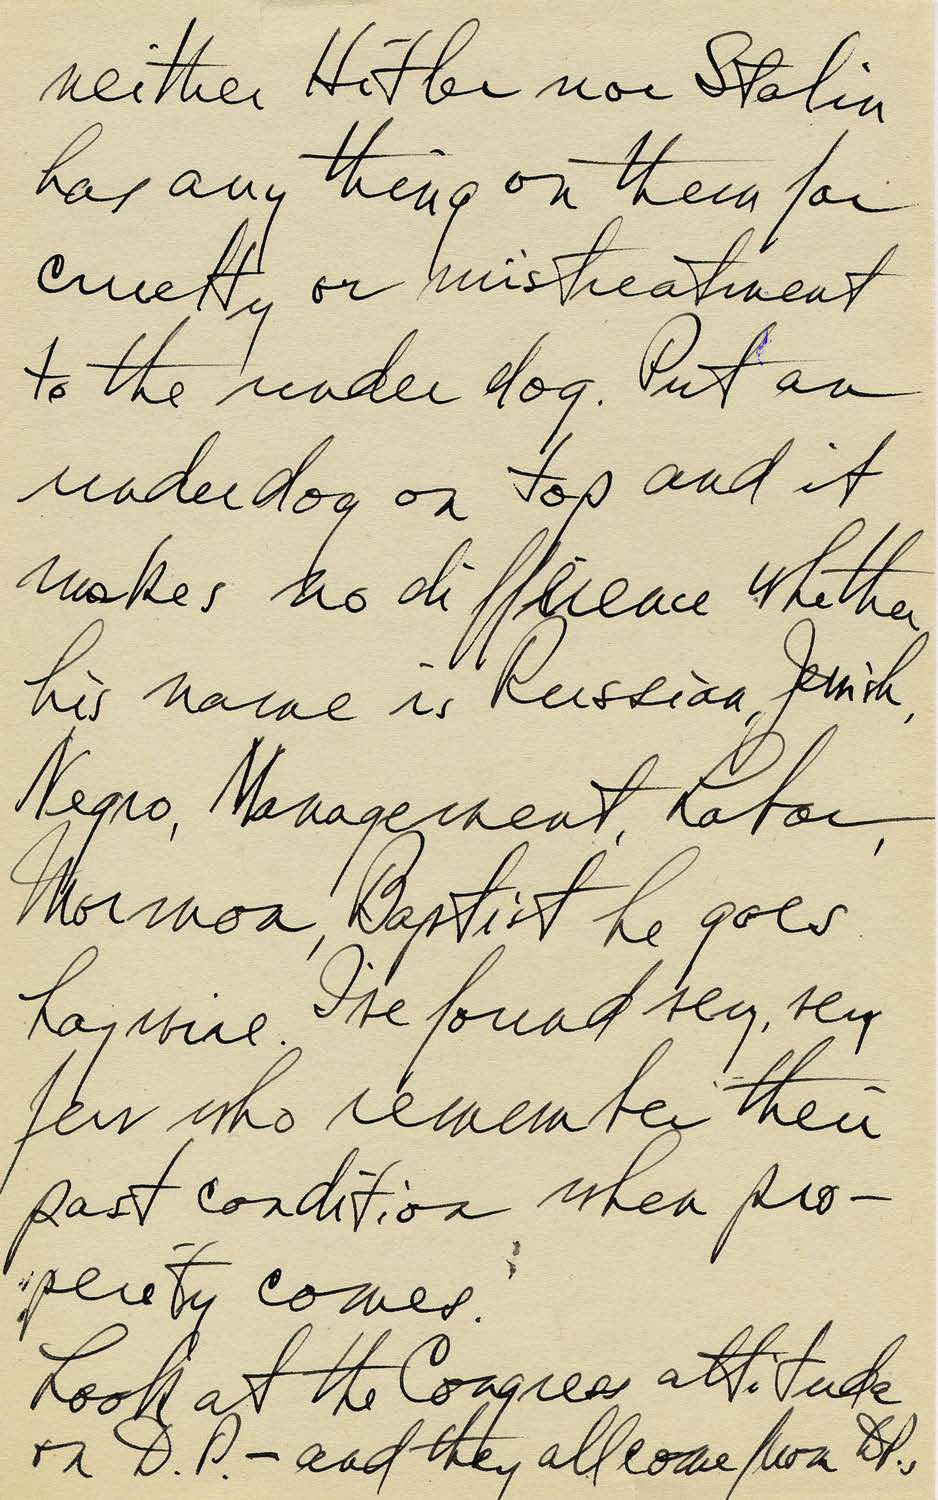 neither Hitler nor Stalin
has any thing on them for
cruelty or mistreatment
to the under dog. Put an
underdog on top and it
makes no difference whether
his name is Russian, Jewish,
Negro, Management, Labor,
Mormon, Baptist he goes
haywire. I've found very, very
few who remember their
past condition when pro-
perity comes.
Look at the Congress attitude
on D.P. – and they all come from D.P.s